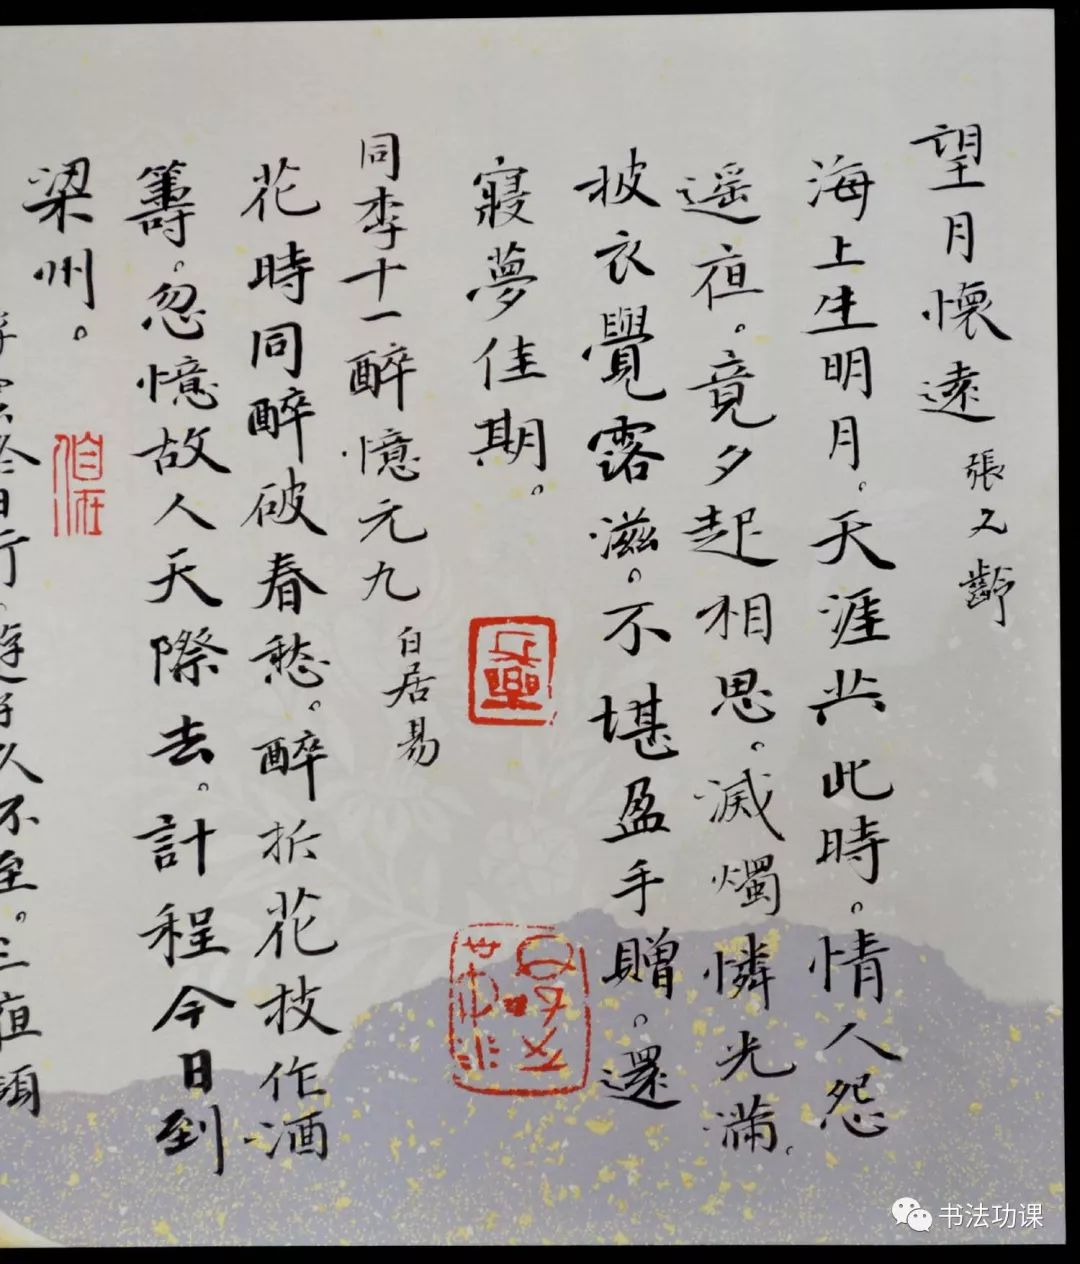 望月懷遠
張九齡
海上生明月。天涯共此時。情人怨
遥夜。竟夕起相思。滅燭憐光滿。
披衣覺露滋。不堪盈手贈。還
寢夢佳期。
同李十一醉憶元九
白居易
花時同醉破春愁。醉折花枝作酒
籌。忽憶故人天際去。計程今日到
梁州。
日行。遊子久不至。三夜頻
书法功课